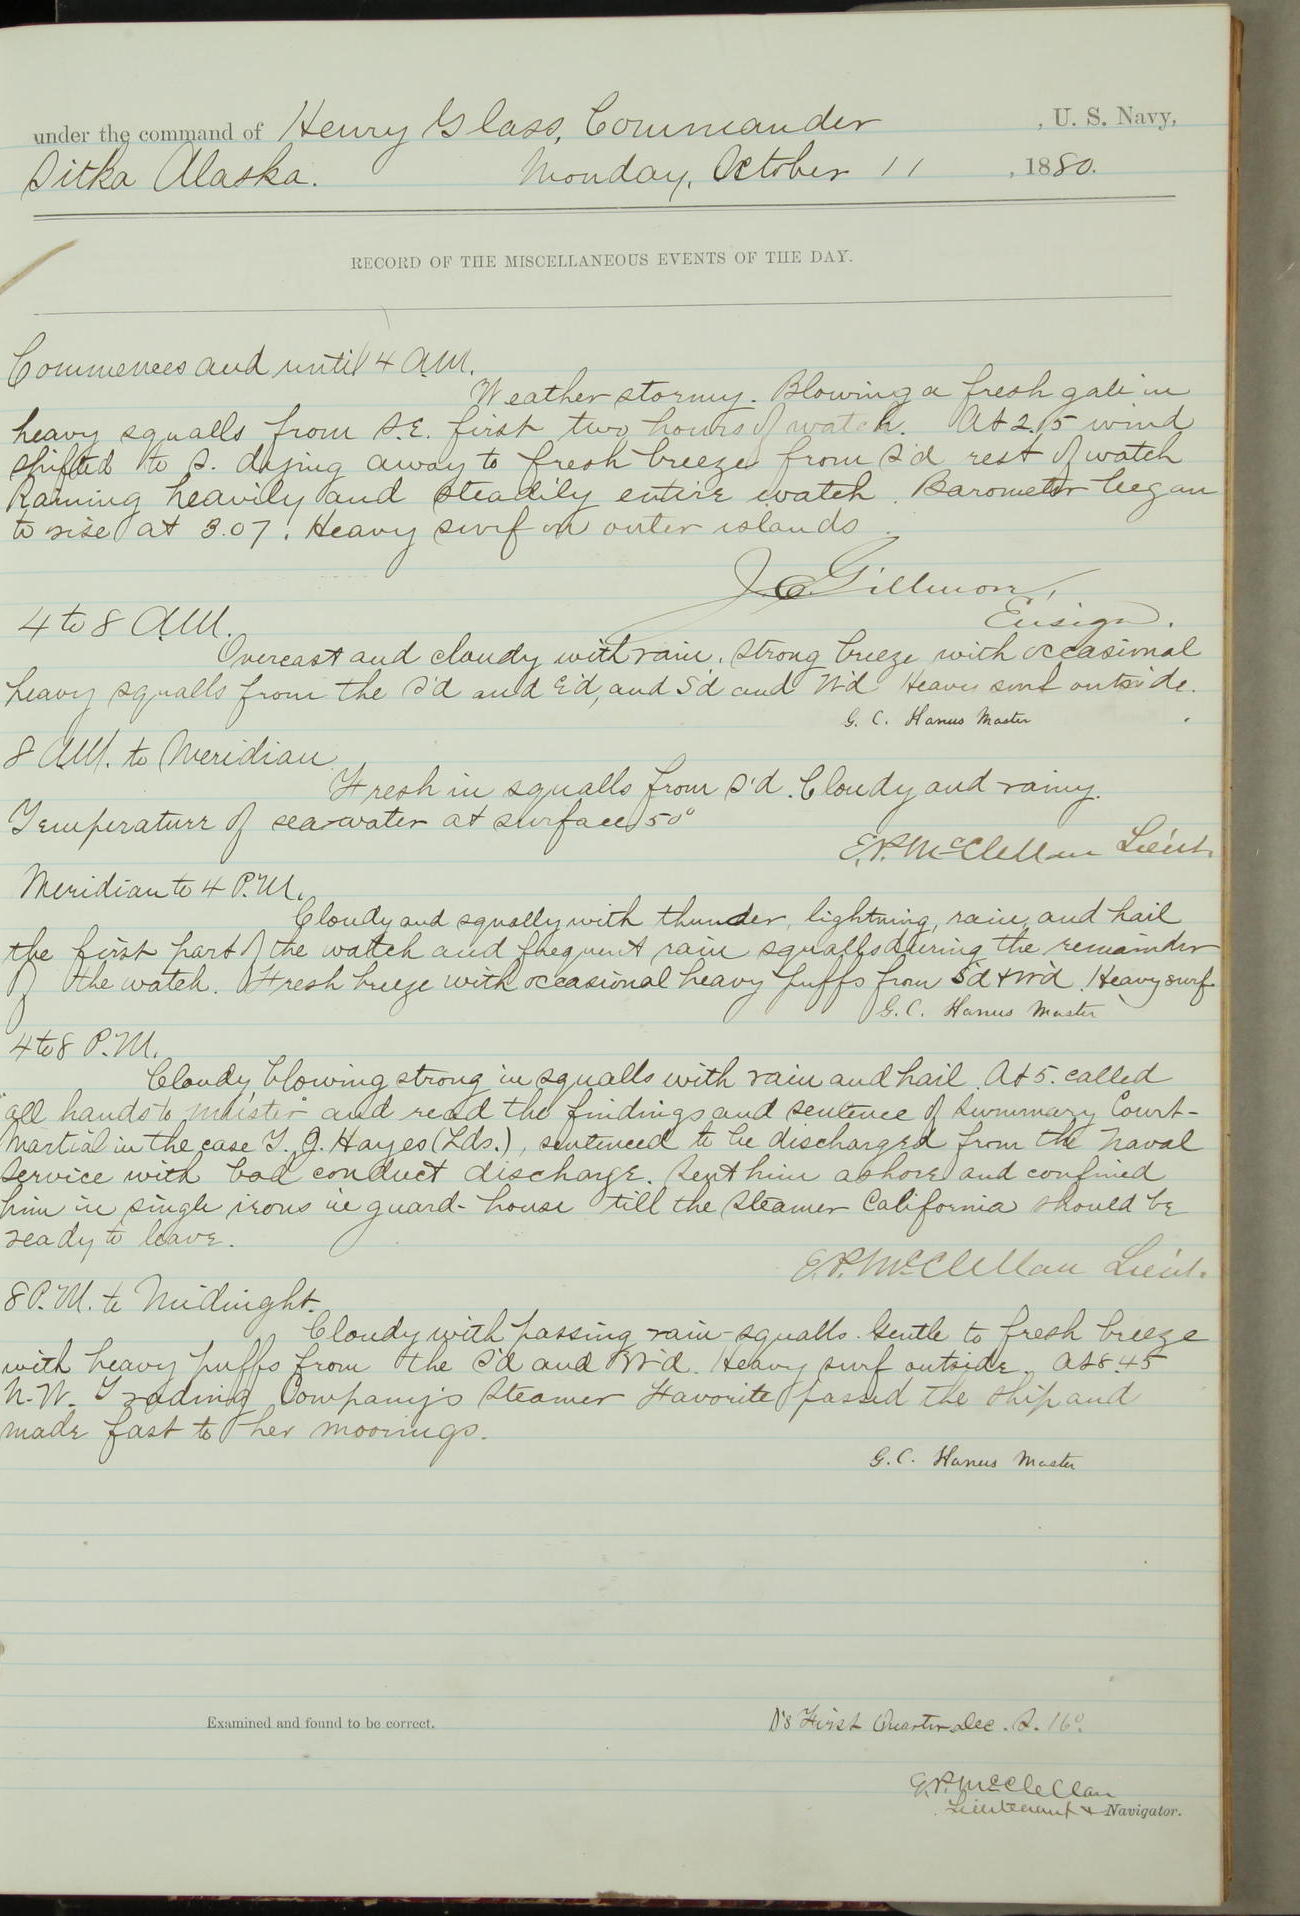 under the command of Henry Glass, Commander , U. S. Navy,
Sitka Alaska. Monday, October 11 , 1880.
RECORD OF THE MISCELLANEOUS EVENTS OF THE DAY.
Commences and until 4 A.M.
Weather stormy. Blowing a fresh gale in
heavy squalls from S.E. first two hours of watch. At 2.15 wind
shifted to S. dying away to fresh breeze from S'd rest of watch
Raining heavily and steadily entire watch. Barometer began
to rise at 3.07. Heavy surf on outer islands.
J. C. Gillmore,
Ensign.
4 to 8 A.M.
Overcast and cloudy with rain. Strong breeze with occasional
heavy squalls from the S'd and E'd, and S'd and W'd Heavy surf outside.
G. C. Hanus Master
8 A.M. to Meridian.
Fresh in squalls from S'd. Cloudy and rainy.
Temperature of sea-water at surface 50°
E.P. McClellan Lieut.
Meridian to 4 P.M.
Cloudy and squally with thunder, lightning, rain, and hail
the first part of the watch and frequent rain squalls during the remainder
of the watch. Fresh breeze with occasional heavy puffs from S'd & W'd. Heavy surf.
G. C. Hanus Master
4 to 8 P.M.
Cloudy, blowing strong in squalls with rain and hail. At 5. called
"all hands to muster" and read the findings and sentence of Summary Court-
Martial in the case T. J. Hayes (Lds.), sentenced to be discharged from the Naval
Service with bad conduct discharge. Sent him ashore and confined
him in single irons in guard-house till the Steamer California should be
ready to leave.
E.P. McClellan Lieut.
8 P.M. to Midnight.
Cloudy with passing rain-squalls. Gentle to fresh breeze
with heavy puffs from the S'd and W'd. Heavy surf outside. At 8.45
N.W. Trading Company's Steamer Favorite passed the ship and
made fast to her moorings.
G. C. Hanus Master
Examined and found to be correct.
D's First Quarter Dec. S. 16°.
E.P. McClellan
Lieutenant & Navigator.